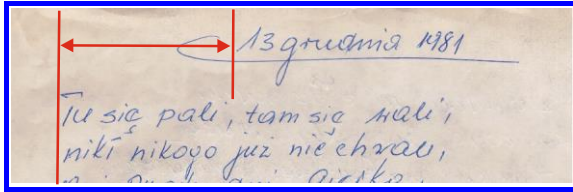 13 grudnia 1981
Tu się pali, tam się wali,
nikt nikogo już nie chwali,